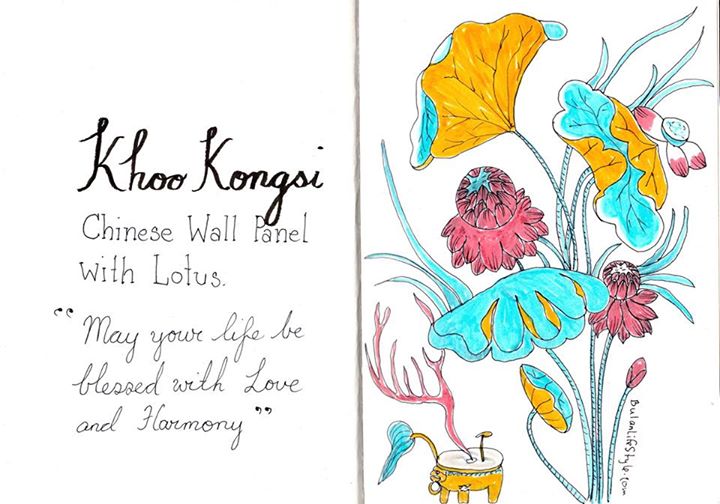 Khoo Kongsi
Chinese Wall Panel
with Lotus.
"May your life be
blessed with Love
and Harmony"
BulanLifestyle.com